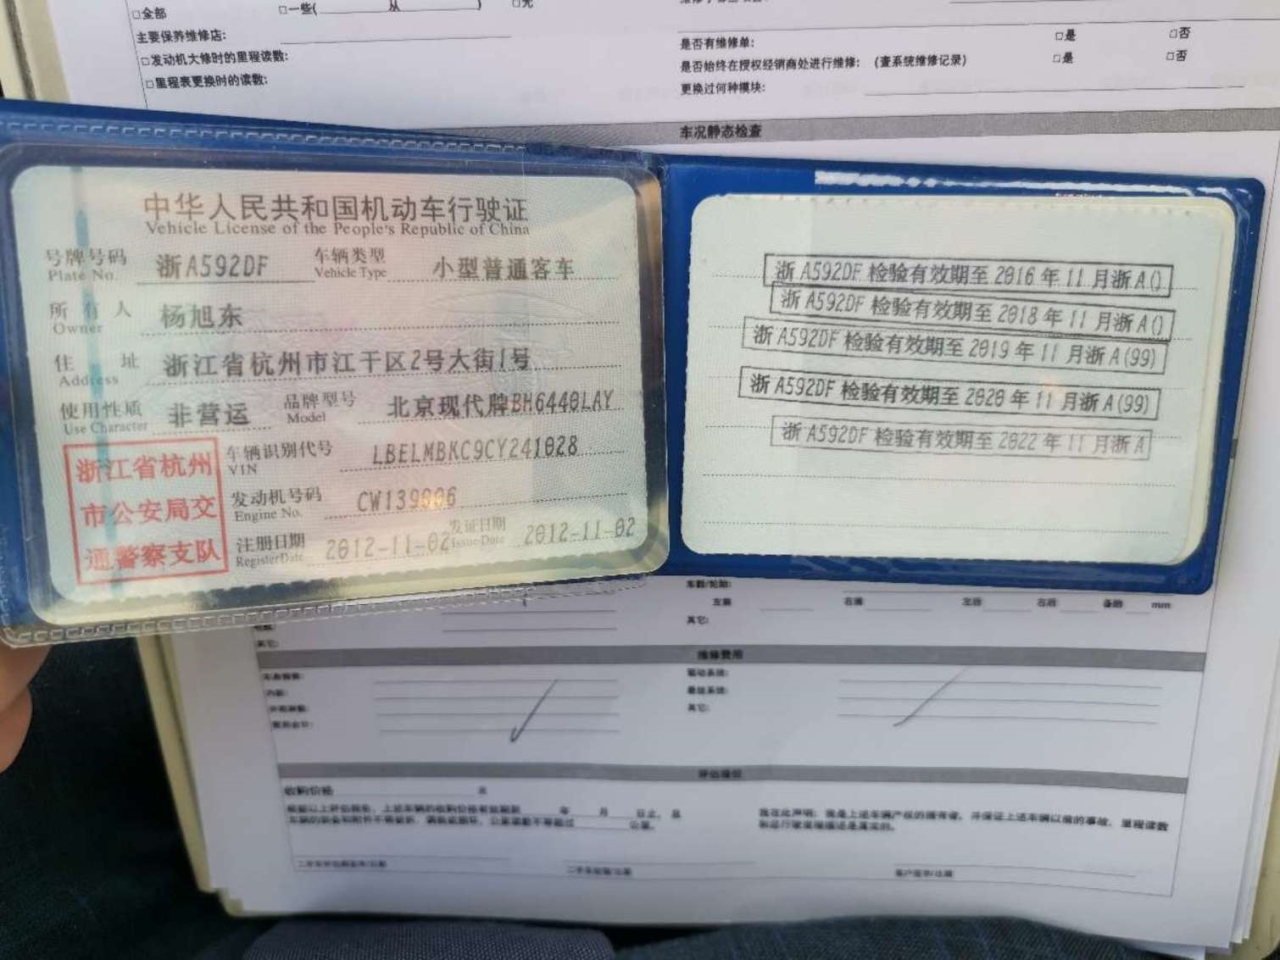 □全部 □一些( 从 ) □无
主要保养维修店:
□发动机大修时的里程读数:
□里程表更换时的读数:
是否有维修单: □是 □否
是否始终在授权经销商处进行维修: (查系统维修记录) □是 □否
更换过何种模块:
车况静态检查
中华人民共和国机动车行驶证
Vehicle License of the People's Republic of China
号牌号码 浙A592DF 车辆类型 小型普通客车
Plate No. Vehicle Type
所有人 杨旭东
Owner
住址 浙江省杭州市江干区2号大街1号
Address
使用性质 非营运 品牌型号 北京现代牌BH6440LAY
Use Character Model
浙江省杭州
市公安局交
通警察支队
车辆识别代号 LBELMBKC9CY241028
VIN
发动机号码
Engine No.
注册日期 2012-11-02 发证日期 2012-11-02
Register Date Issue Date
浙A592DF 检验有效期至 2016 年 11 月浙A()
浙A592DF 检验有效期至 2018 年 11 月浙A()
浙A592DF 检验有效期至 2019 年 11 月浙A(99)
浙A592DF 检验有效期至 2020 年 11 月浙A(99)
浙A592DF 检验有效期至 2022 年 11 月浙A
左前 右前 左后 右后 备胎 mm
其它:
其它:
维修费用
其它:
收购价格 元